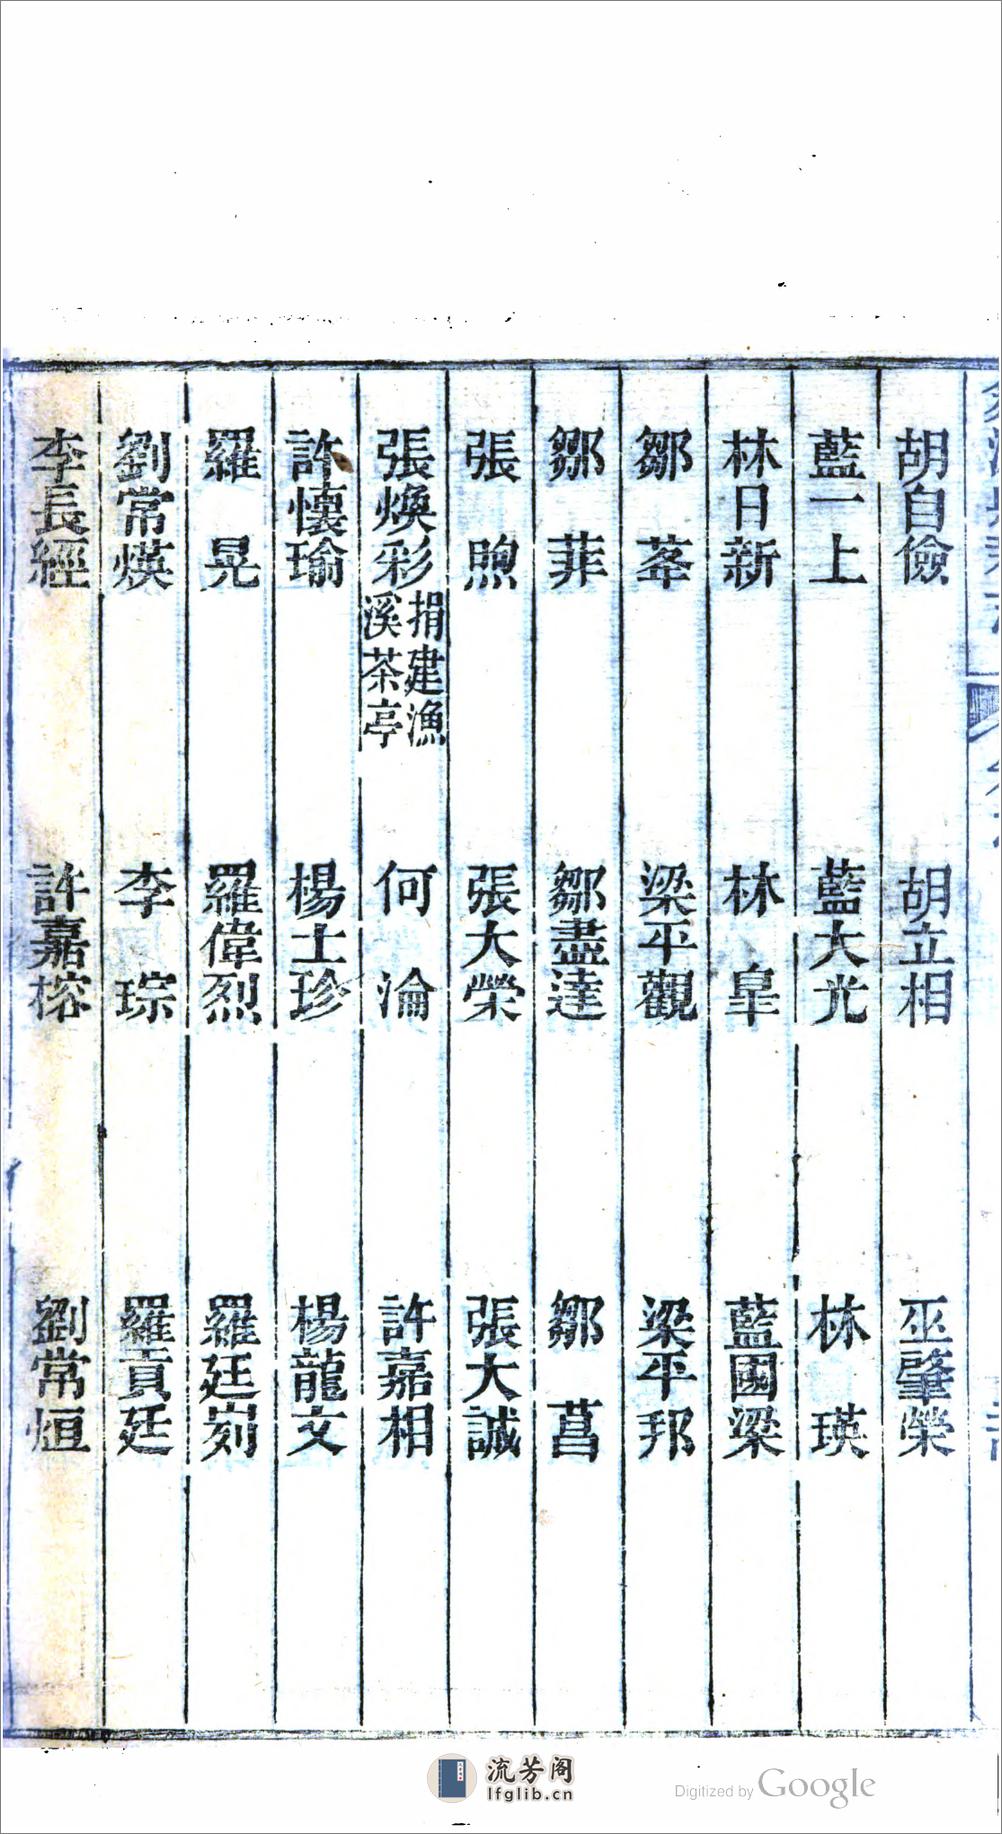 胡自儉　胡立相　巫肇榮
藍一上　藍大光　林瑛
林日新　林皐　藍國梁
鄒莑　梁平觀　梁平邦
鄒菲　鄒盡達　鄒菖
張煦　張大榮　張大誠
張煥彩捐建漁溪茶亭　何淪　許嘉相
許懷瑜　楊士珍　楊龍文
羅晃　羅偉烈　羅廷剡
劉常煐　李琮　羅貢廷
李長經　許嘉榕　劉常烜
流芳阁
lfglib.cn
Digitized by Google